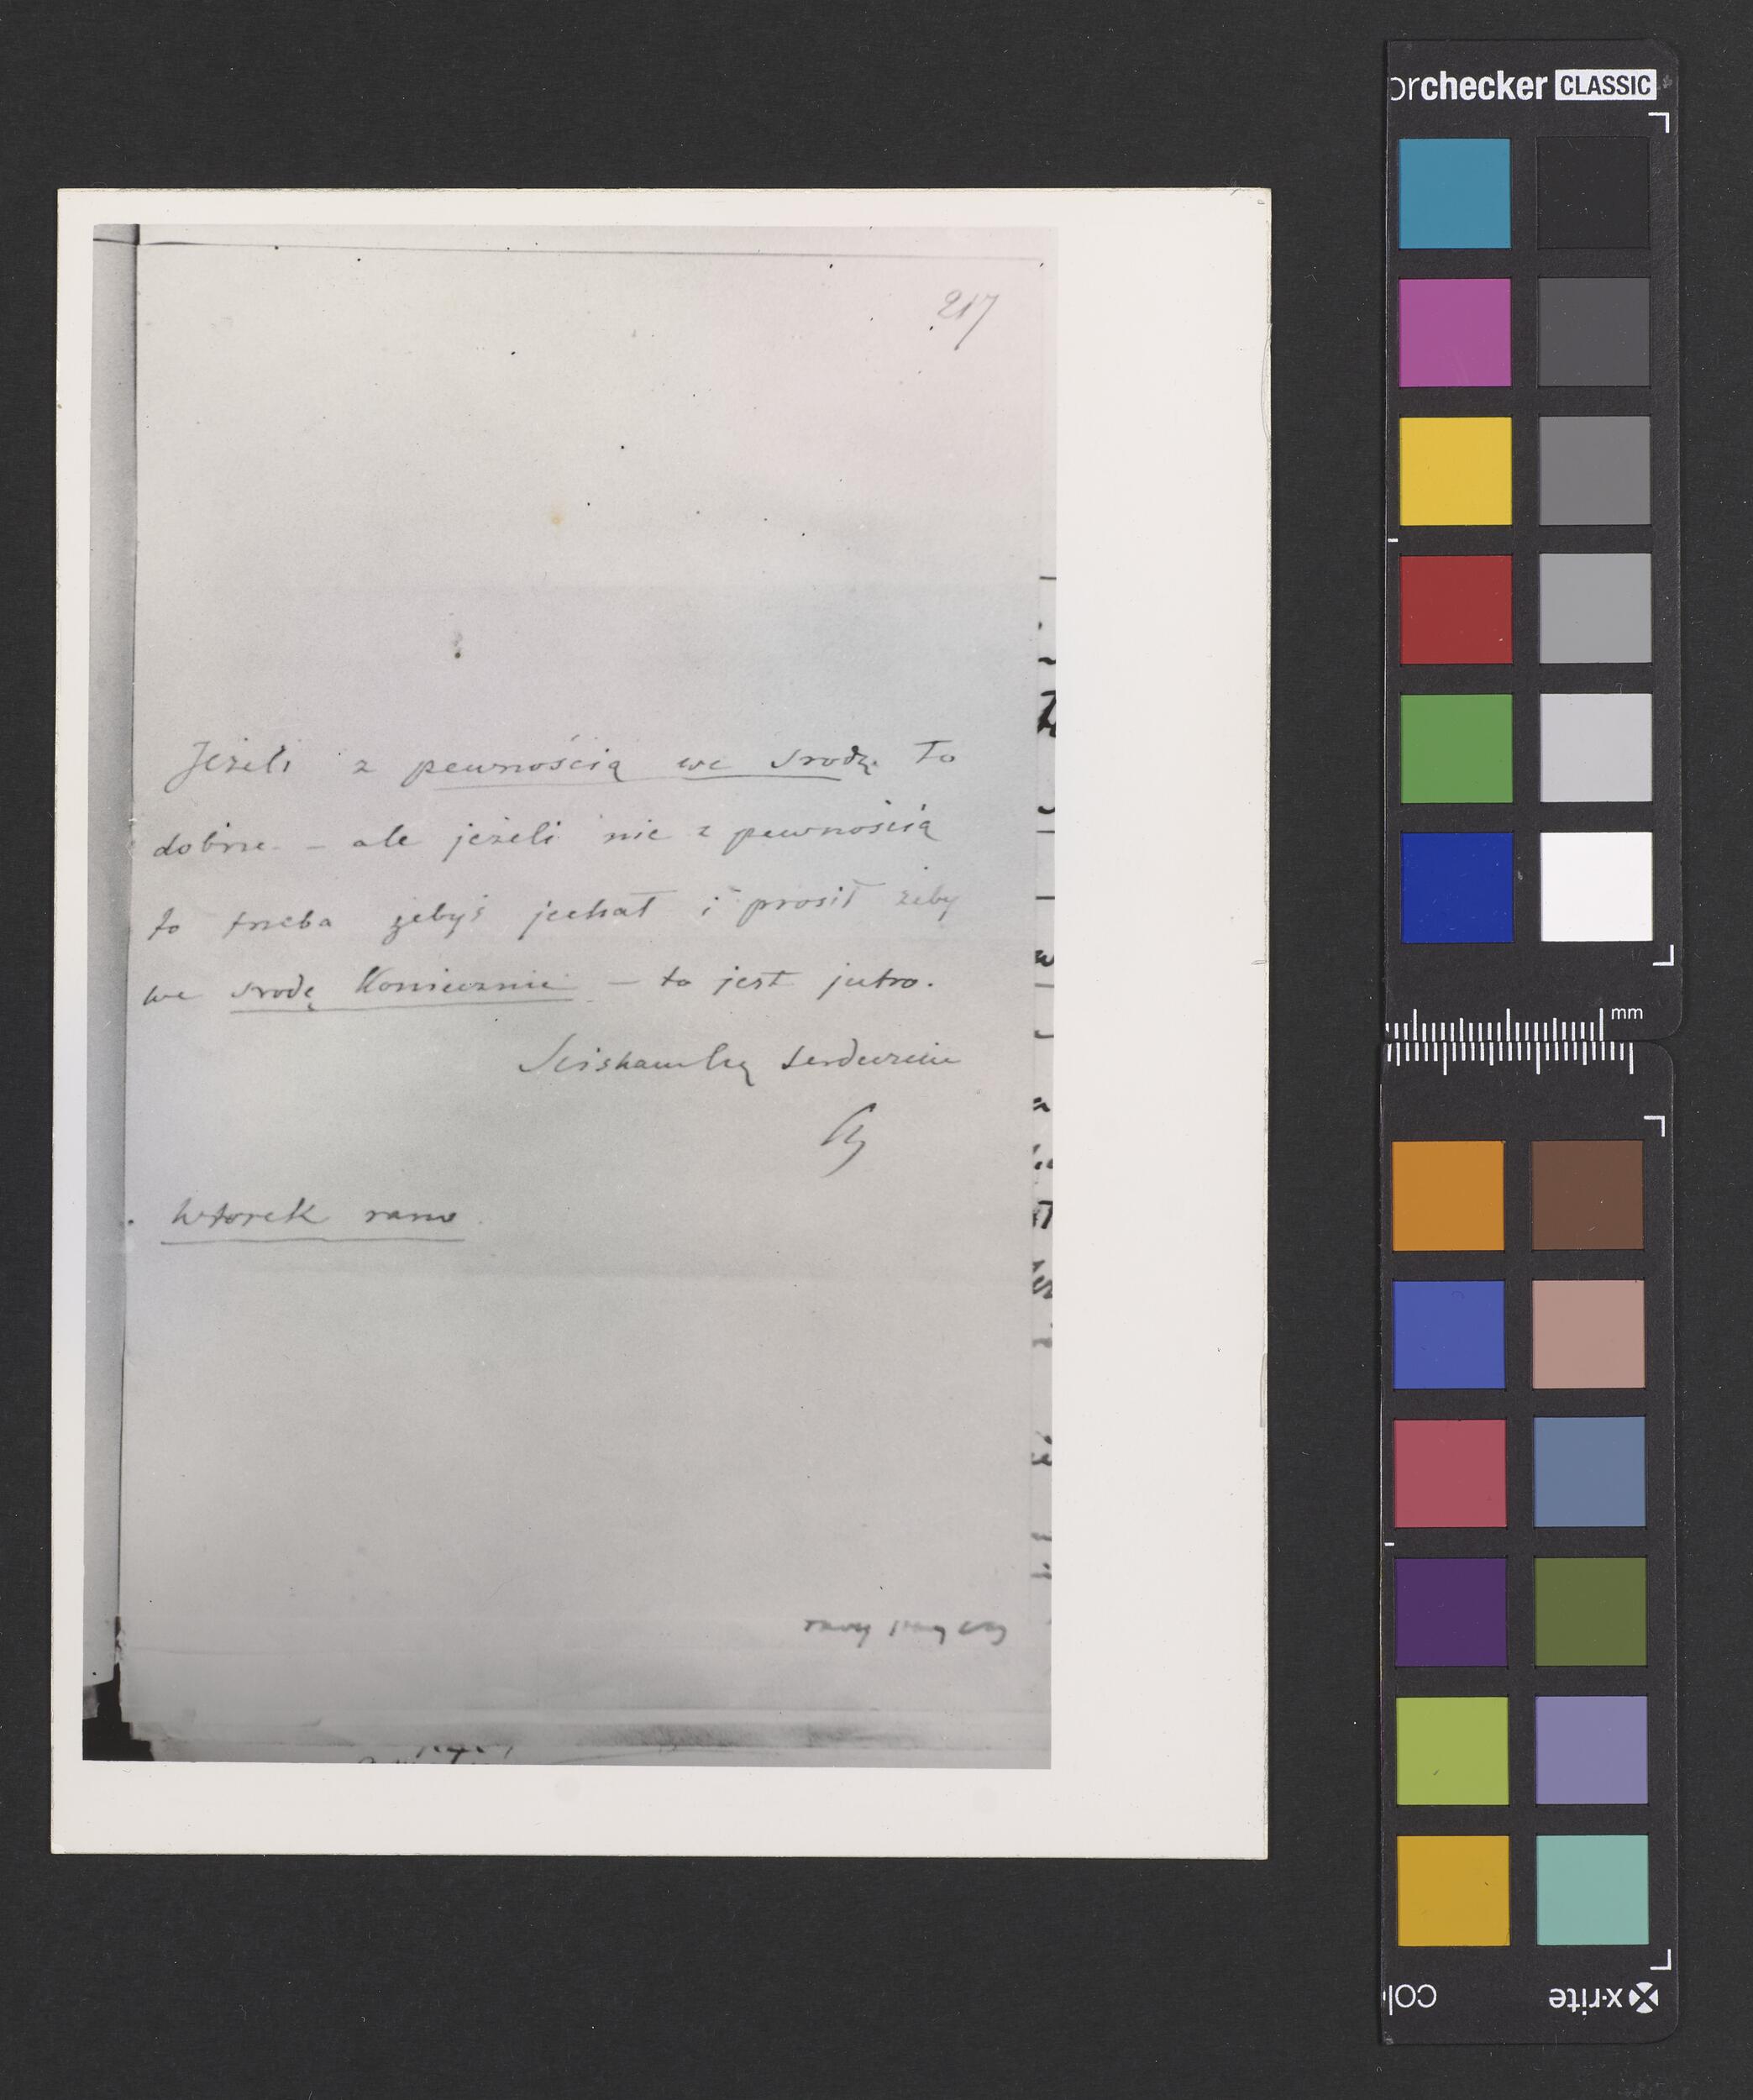 217
Jeżeli z pewnością we srodę to
dobrze. – ale jeżeli nie z pewnością
to trzeba żebyś jechał i prosił żeby
we srodę Koniecznie – to jest jutro.
Sciskam Cię serdecznie
wtorek rano
orchecker CLASSIC
mm
x·rite